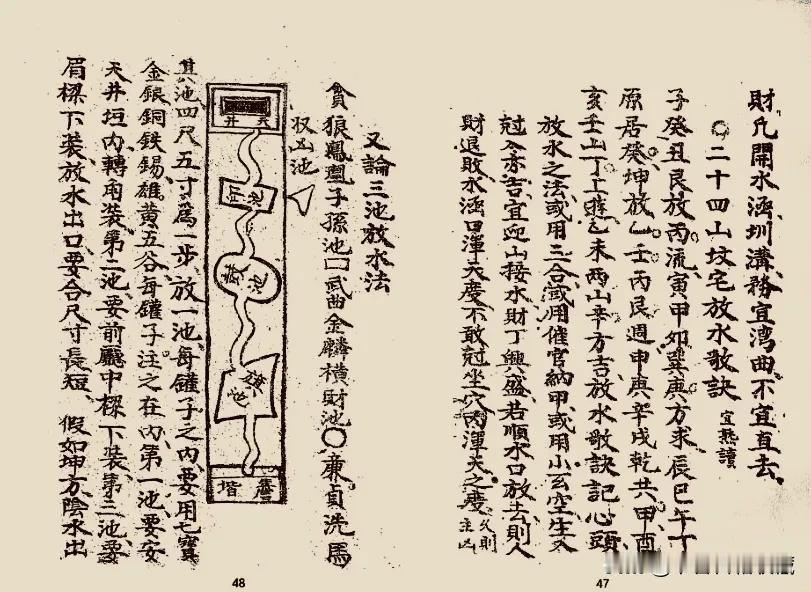 財凡開水涵圳溝務宜湾曲不宜直去
○二十四山坟宅放水敬訣 宜熟讀
子癸丑艮放丙流寅甲卯巽庚方求辰巳午丁
原居癸坤放乙壬丙艮週申庚辛戌乾共甲酉
亥壬山丁上遊乙未兩山辛方吉放水敬訣記心頭
放水之法或用三合或用催官納甲或用小玄空生入
尅入亦吉宜迎山接水財丁興盛若順水口放去則人
財退敗水涵口渾天度不敢尅坐穴內渾天之度 欠則主凶
47
又論三池放水法
貪狼鳳凰子孫池 武曲金麟橫財池○廉貞洗馬
池
天井
印池
鼓池
旗池
階
其池四尺五寸為一步放一池每罐子之內要用七寶
金銀銅鉄錫雄黃五谷每罐子注之在內第一池要安
天井垣內轉兩裝第二池要前廳中樑下裝第三池要
眉樑下裝放水出口要合尺寸長短 假如坤方陰水出
48